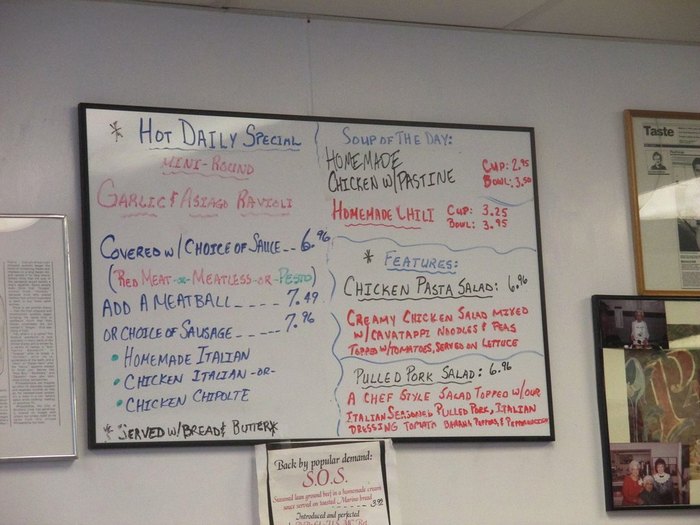 * HOT DAILY SPECIAL
MINI-ROUND
GARLIC & ASIAGO RAVIOLI
COVERED W/ CHOICE OF SAUCE -- 6.96
(RED MEAT-OR-MEATLESS-OR-PESTO)
ADD A MEATBALL ---- 7.49
OR CHOICE OF SAUSAGE ----- 7.96
• HOMEMADE ITALIAN
• CHICKEN ITALIAN -OR-
• CHICKEN CHIPOLTE
* SERVED W/ BREAD & BUTTER *
SOUP OF THE DAY:
HOMEMADE
CHICKEN W/ PASTINE
CUP: 2.95
BOWL: 3.50
HOMEMADE CHILI CUP: 3.25
BOWL: 3.95
* FEATURES:
CHICKEN PASTA SALAD: 6.96
CREAMY CHICKEN SALAD MIXED
W/ CAVATAPPI NOODLES & PEAS
TOPPED W/ TOMATOES, SERVED ON LETTUCE
PULLED PORK SALAD: 6.96
A CHEF STYLE SALAD TOPPED W/ OUR
ITALIAN SEASONED PULLED PORK, ITALIAN
DRESSING TOMATO BANANA PEPPERS, & PEPPERONCINI
Back by popular demand:
S.O.S.
Seasoned lean ground beef in a homemade cream
sauce served on toasted Marino bread
Introduced and perfected
Taste